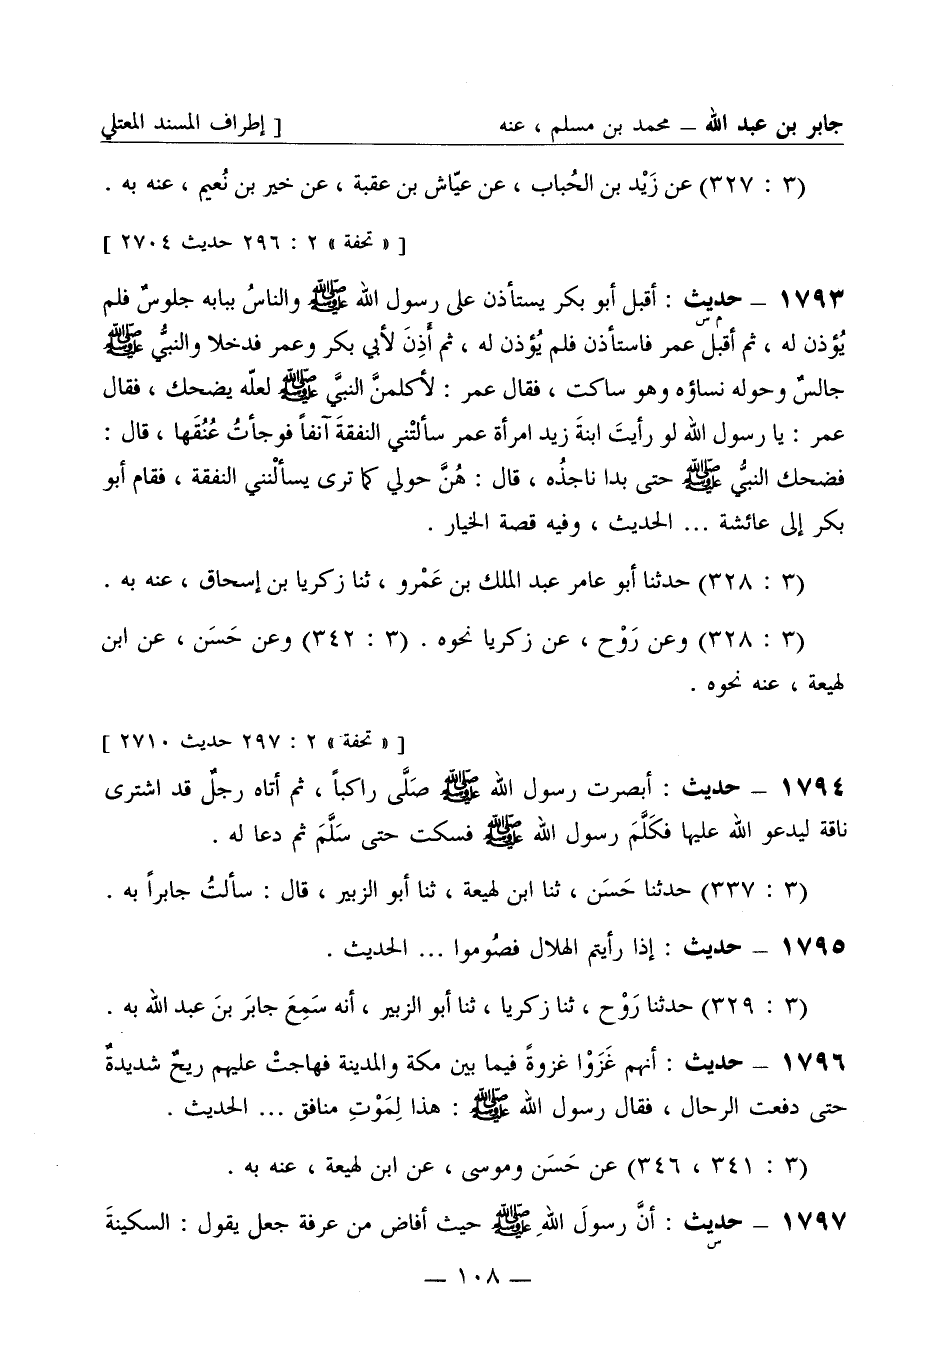 جابر بن عبد الله – محمد بن مسلم ، عنه [ إطراف المسند المعتلي
(٣ : ٣٢٧) عن زَيْد بن الحُباب ، عن عيّاش بن عقبة ، عن خير بن نُعيم ، عنه به .
[ « تحفة » ٢ : ٢٩٦ حديث ٢٧٠٤ ]
١٧٩٣ – حديث : أقبل أبو بكر يستأذن على رسول الله ﷺ والناسُ ببابه جلوسٌ فلم
م س
يُؤذن له ، ثم أقبل عمر فاستأذن فلم يُؤذن له ، ثم أَذِنَ لأبي بكر وعمر فدخلا والنبيُّ ﷺ
جالسٌ وحوله نساؤه وهو ساكت ، فقال عمر : لأكلمنَّ النبيَّ ﷺ لعلّه يضحك ، فقال
عمر : يا رسول الله لو رأيتَ ابنةَ زيد امرأة عمر سألتْني النفقةَ آنفاً فوجأتُ عُنُقَها ، قال :
فضحك النبيُّ ﷺ حتى بدا ناجذُه ، قال : هُنَّ حولي كما ترى يسألْنني النفقة ، فقام أبو
بكر إلى عائشة ... الحديث ، وفيه قصة الخيار .
(٣ : ٣٢٨) حدثنا أبو عامر عبد الملك بن عَمْرو ، ثنا زكريا بن إسحاق ، عنه به .
(٣ : ٣٢٨) وعن رَوْح ، عن زكريا نحوه . (٣ : ٣٤٢) وعن حَسَن ، عن ابن
لهيعة ، عنه نحوه .
[ « تحفة » ٢ : ٢٩٧ حديث ٢٧١٠ ]
١٧٩٤ – حديث : أبصرت رسول الله ﷺ صَلَّى راكباً ، ثم أتاه رجلٌ قد اشترى
ناقة ليدعو الله عليها فكَلَّمَ رسول الله ﷺ فسكت حتى سَلَّمَ ثم دعا له .
(٣ : ٣٣٧) حدثنا حَسَن ، ثنا ابن لهيعة ، ثنا أبو الزبير ، قال : سألتُ جابراً به .
١٧٩٥ – حديث : إذا رأيتم الهلال فصُوموا ... الحديث .
(٣ : ٣٢٩) حدثنا رَوْح ، ثنا زكريا ، ثنا أبو الزبير ، أنه سَمِعَ جابرَ بنَ عبد الله به .
١٧٩٦ – حديث : أنهم غَزَوْا غزوةً فيما بين مكة والمدينة فهاجتْ عليهم ريحٌ شديدةٌ
حتى دفعت الرحال ، فقال رسول الله ﷺ : هذا لِمَوْتِ منافق ... الحديث .
(٣ : ٣٤١ ، ٣٤٦) عن حَسَن وموسى ، عن ابن لهيعة ، عنه به .
١٧٩٧ – حديث : أنَّ رسولَ اللهِ ﷺ حيث أفاض من عرفة جعل يقول : السكينةَ
س
– ١٠٨ –